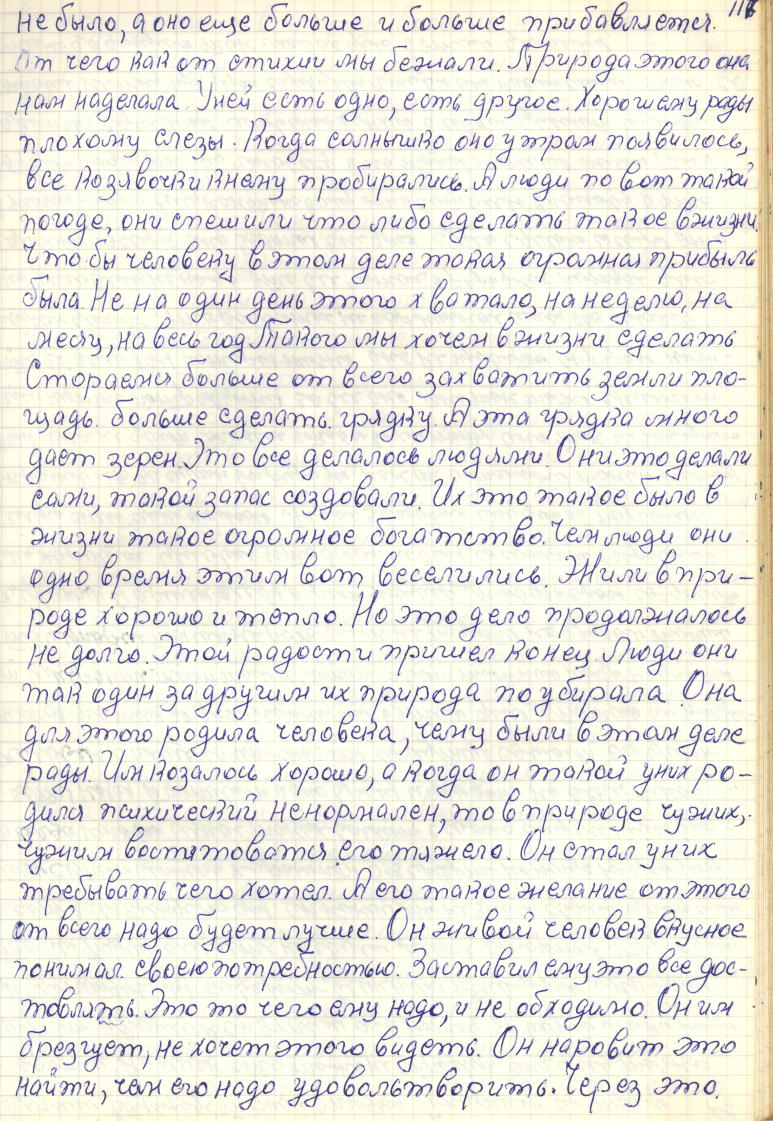 116
не было, а оно еще больше и больше прибавляется.
От чего как от стихии мы бежали. Природа этого она
нам наделала. У ней есть одно, есть другое. Хорошему рады
плохому слезы. Когда солнышко оно утром появилось,
все козявочки к нему пробирались. А люди по вот такой
погоде, они спешили что либо сделать такое в жизни.
Что бы человеку в этом деле такая огромная прибыль
была. Не на один день этого хватало, на неделю, на
месяц, на весь год. Такого мы хочем в жизни сделать
Стораемся больше от всего захватить земли пло-
щадь. больше сделать грядку. А эта грядка много
дает зерен. Это все делалось людями. Они это делали
сами, такой запас создовали. Их это такое было в
жизни такое огромное богатство. Чем люди они
одно время этим вот веселились. Жили в при-
роде хорошо и тепло. Но это дело продолжалось
не долго. Этой радости пришел конец. Люди они
так один за другим их природа поубирала. Она
для этого родила человека, чему были в этом деле
рады. Им козалось хорошо, а когда он такой у них ро-
дился психический ненормален, то в природе чужих,
чужим воститоватся его тяжело. Он стал у них
требывать чего хотел. А его такое желание от этого
от всего надо будет лучше. Он живой человек вкусное
понимал своею потребностью. Заставил ему это все дос-
товлять. Это то чего ему надо, и не обходимо. Он им
брезгует, не хочет этого видеть. Он наровит это
найти, чем его надо удовольтворить. Через это.